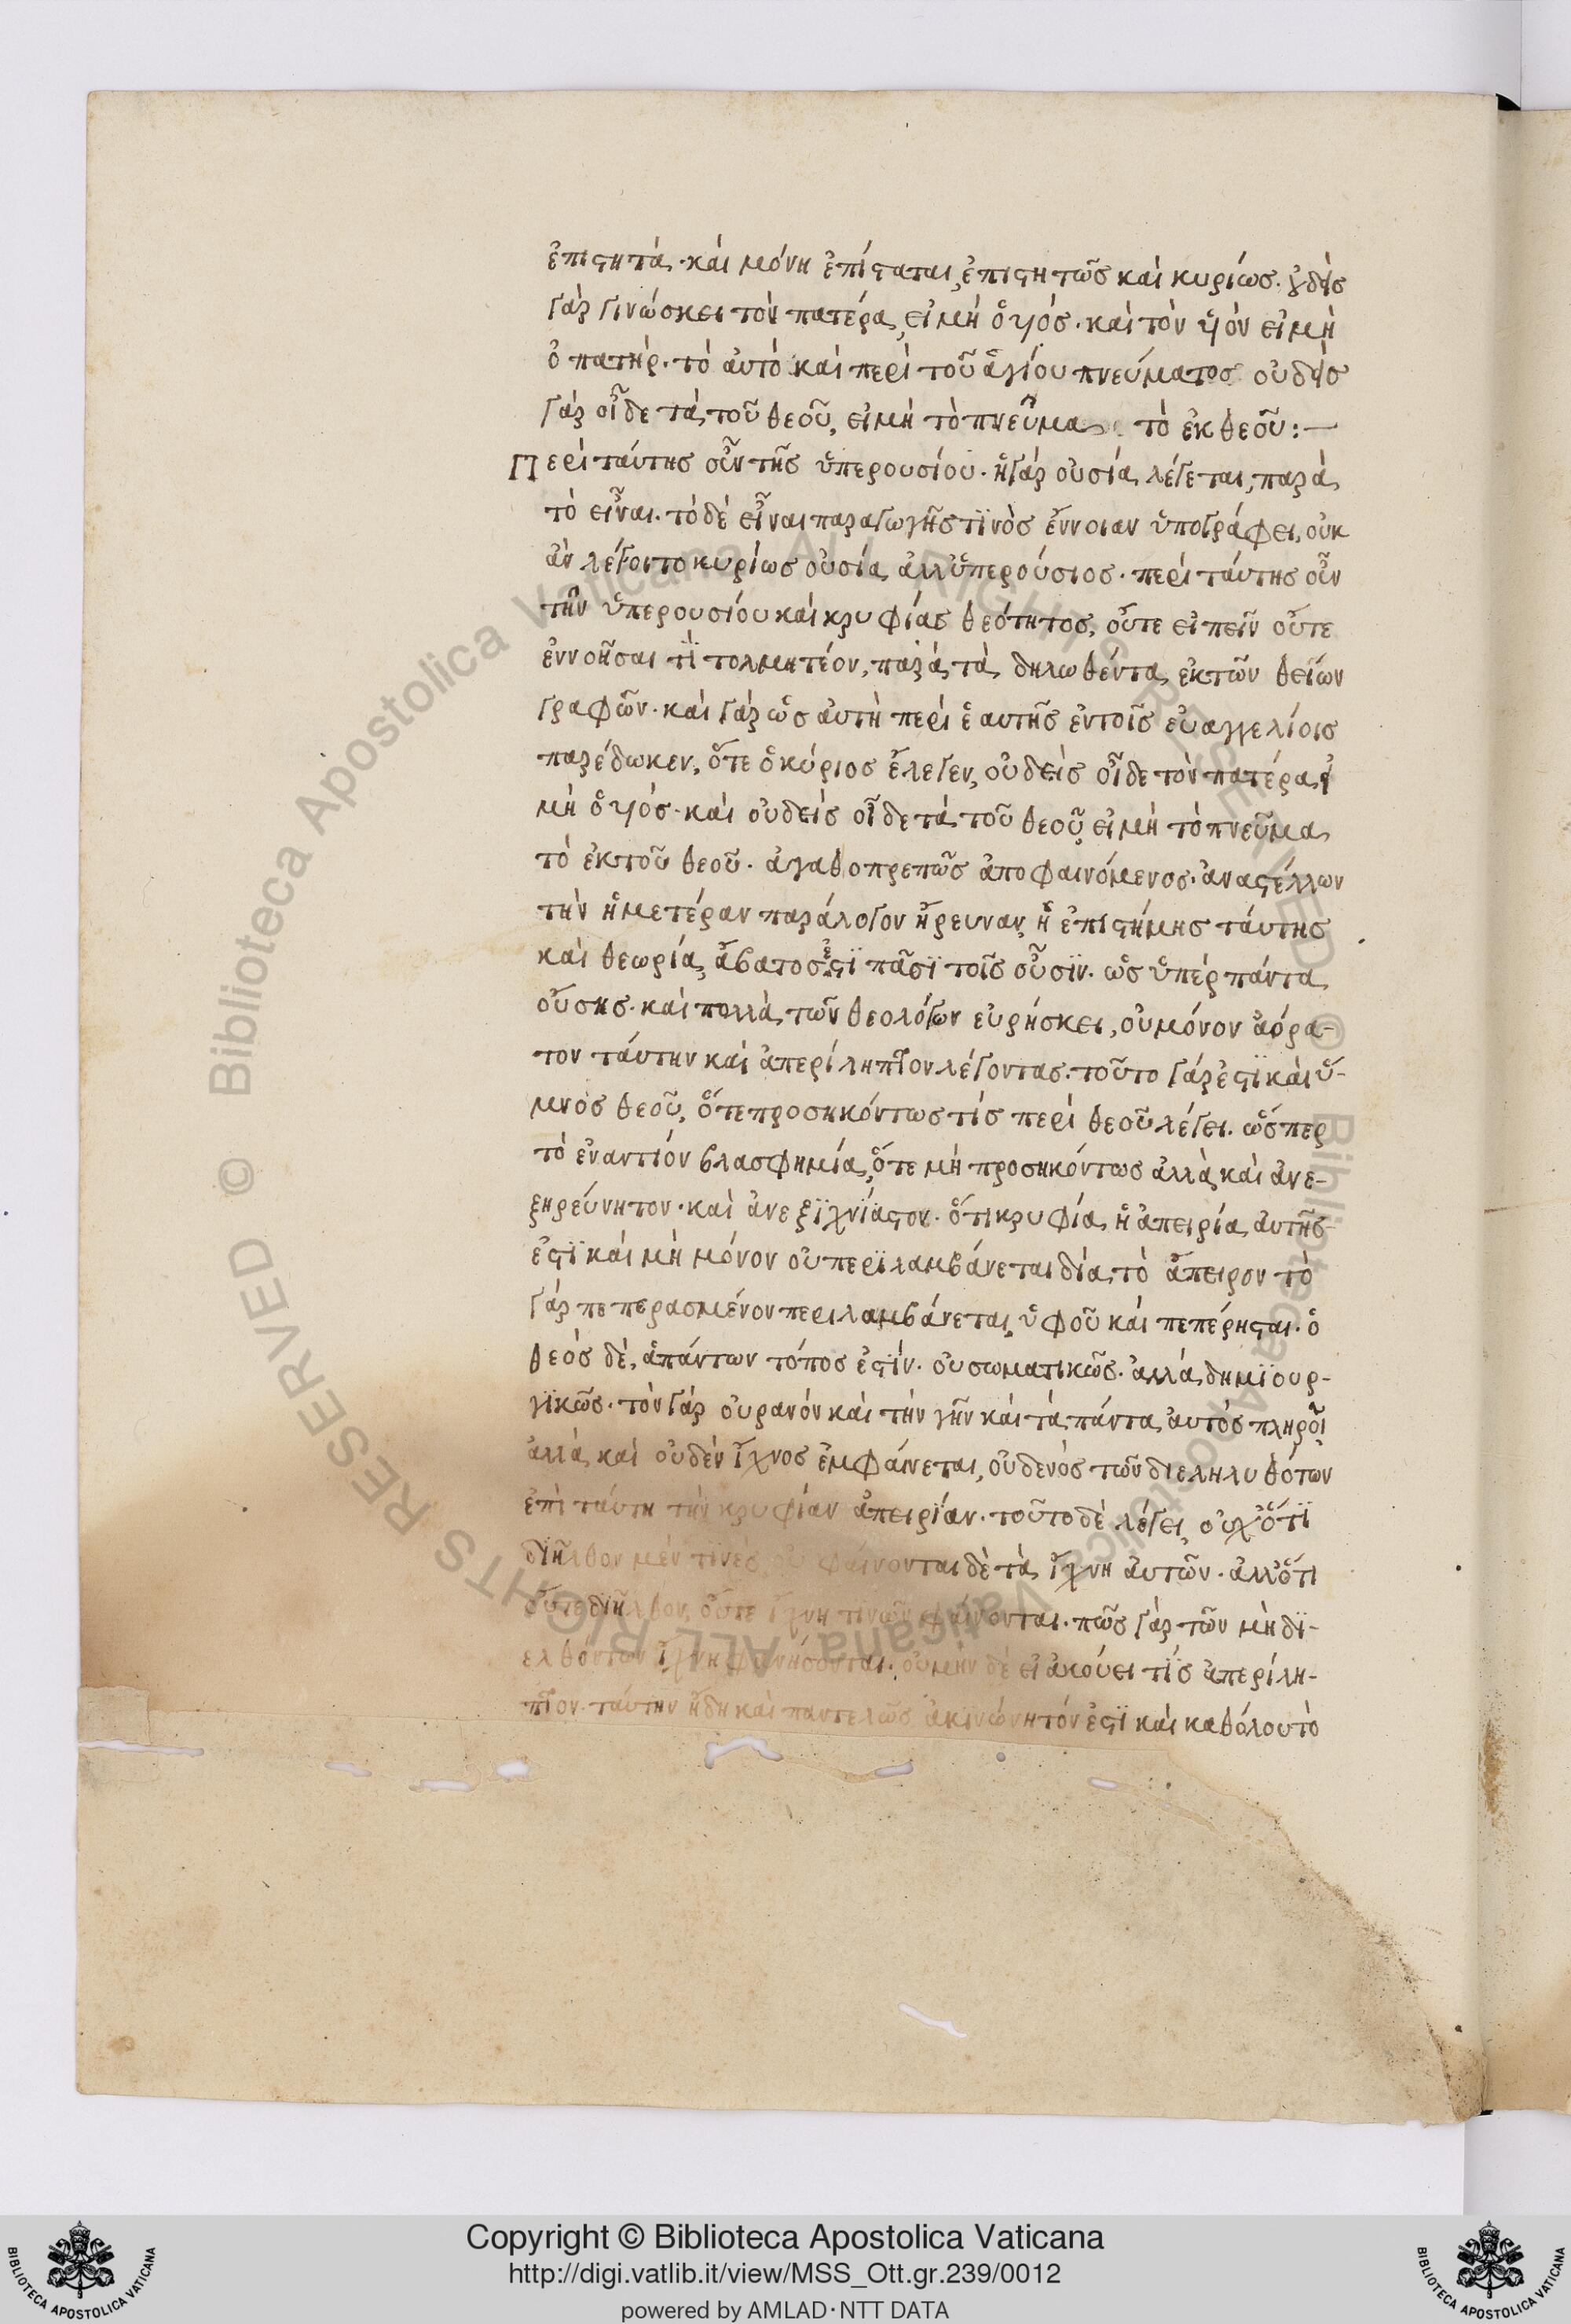 ἐπιστητὰ· καὶ μόνη ἐπίσταται, ἐπιστητῶς καὶ κυρίως· οὐδεὶς
γὰρ γινώσκει τὸν πατέρα, εἰ μὴ ὁ υἱός· καὶ τὸν υἱὸν εἰ μὴ
ὁ πατήρ· τὸ αὐτὸ καὶ περὶ τοῦ ἁγίου πνεύματος οὐδεὶς
γὰρ οἶδε τὰ τοῦ θεοῦ, εἰ μὴ τὸ πνεῦμα τὸ ἐκ θεοῦ:—
Περὶ ταύτης οὖν τῆς ὑπερουσίου· ἡ γὰρ οὐσία λέγεται, παρὰ
τὸ εἶναι· τὸ δὲ εἶναι παραγωγῆς τϊνὸς ἔννοιαν ὑπογράφει, οὐκ
ἂν λέγοιτο κυρίως οὐσία ἀλλ' ὑπερούσιος· περὶ ταύτης οὖν
τὴν ὑπερουσίου καὶ κρυφίας θεότητος, οὔτε εἰπεῖν οὔτε
ἐννοῆσαι τϊ τολμητέον, παρὰ τὰ δηλωθέντα ἐκ τῶν θείων
γραφῶν· καὶ γὰρ ὡς αὐτὴ περὶ ἑαυτῆς ἐν τοῖς εὐαγγελίοις
παρέδωκεν, ὅτε ὁ κύριος ἔλεγεν, οὐδεὶς οἶδε τὸν πατέρα, εἰ
μὴ ὁ υἱός· καὶ οὐδεὶς οἶδε τὰ τοῦ θεοῦ, εἰ μὴ τὸ πνεῦμα
τὸ ἐκ τοῦ θεοῦ· ἀγαθοπρεπῶς ἀποφαινόμενος· ἀναστέλλων
τὴν ἡμετέραν παράλογον ἤρευναν, ἡ ἐπιστήμης ταύτης
καὶ θεωρία, ἄβατος ἐστϊ πᾶσϊ τοῖς οὖσϊν· ὡς ὑπὲρ πάντα
οὔσης· καὶ πολλὰ τῶν θεολόγων εὑρήσκει, οὐ μόνον ἀόρα-
τον ταύτην καὶ ἀπερίληπτον λέγοντας· τοῦτο γάρ ἐστϊ καὶ ὕ-
μνος θεοῦ, ὅτε προσηκόντως τίς περὶ θεοῦ λέγει· ὥσπερ
τὸ ἐναντίον βλασφημία, ὅτε μὴ προσηκόντως ἀλλὰ καὶ ἀνε-
ξηρεύνητον· καὶ ἀνεξϊχνίαστον· ὅτι κρυφία ἡ ἀπειρία αὐτῆς
ἐστϊ καὶ μὴ μόνον οὐ περϊλαμβάνεται διὰ τὸ ἄπειρον τὸ
γὰρ πεπερασμένον περιλαμβάνεται, ὑφ' οὗ καὶ πεπέρησται· ὁ
θεὸς δὲ, ἁπάντων τόπος ἐστϊν· οὐ σωματικῶς· ἀλλὰ δημϊουρ-
γϊκῶς· τὸν γὰρ οὐρανὸν καὶ τὴν γῆν καὶ τὰ πάντα αὐτὸς πληροῖ
ἀλλὰ καὶ οὐδὲν ἴχνος ἐμφαίνεται, οὐδενὸς τῶν διεληλυθότων
ἐπὶ ταύτη τὴν κρυφίαν ἀπειρίαν· τοῦτο δὲ λέγει, οὐχ ὅτϊ
διῆλθον μέν τινές οὐ φαίνονται δὲ τὰ ἴχνη αὐτῶν· ἀλλ' ὅτι
οὔτε διῆλθον, οὔτε ἴχνη τινῶν φαίνονται· πῶς γὰρ τῶν μὴ δϊ-
ελθόντων ἴχνη φανήσονται· οὐ μὴν δὲ εἰ ἀκούει τὶς ἀπερίλη-
πτον ταύτην ἤδη καὶ παντελῶς ἀκινώνητόν ἐστϊ καὶ καθόλου τὸ
© Biblioteca Apostolica Vaticana ALL RIGHTS RESERVED © Biblioteca Apostolica Vaticana ALL RIGHTS RESERVED
Copyright © Biblioteca Apostolica Vaticana
http://digi.vatlib.it/view/MSS_Ott.gr.239/0012
powered by AMLAD·NTT DATA
BIBLIOTECA APOSTOLICA VATICANA
BIBLIOTECA APOSTOLICA VATICANA